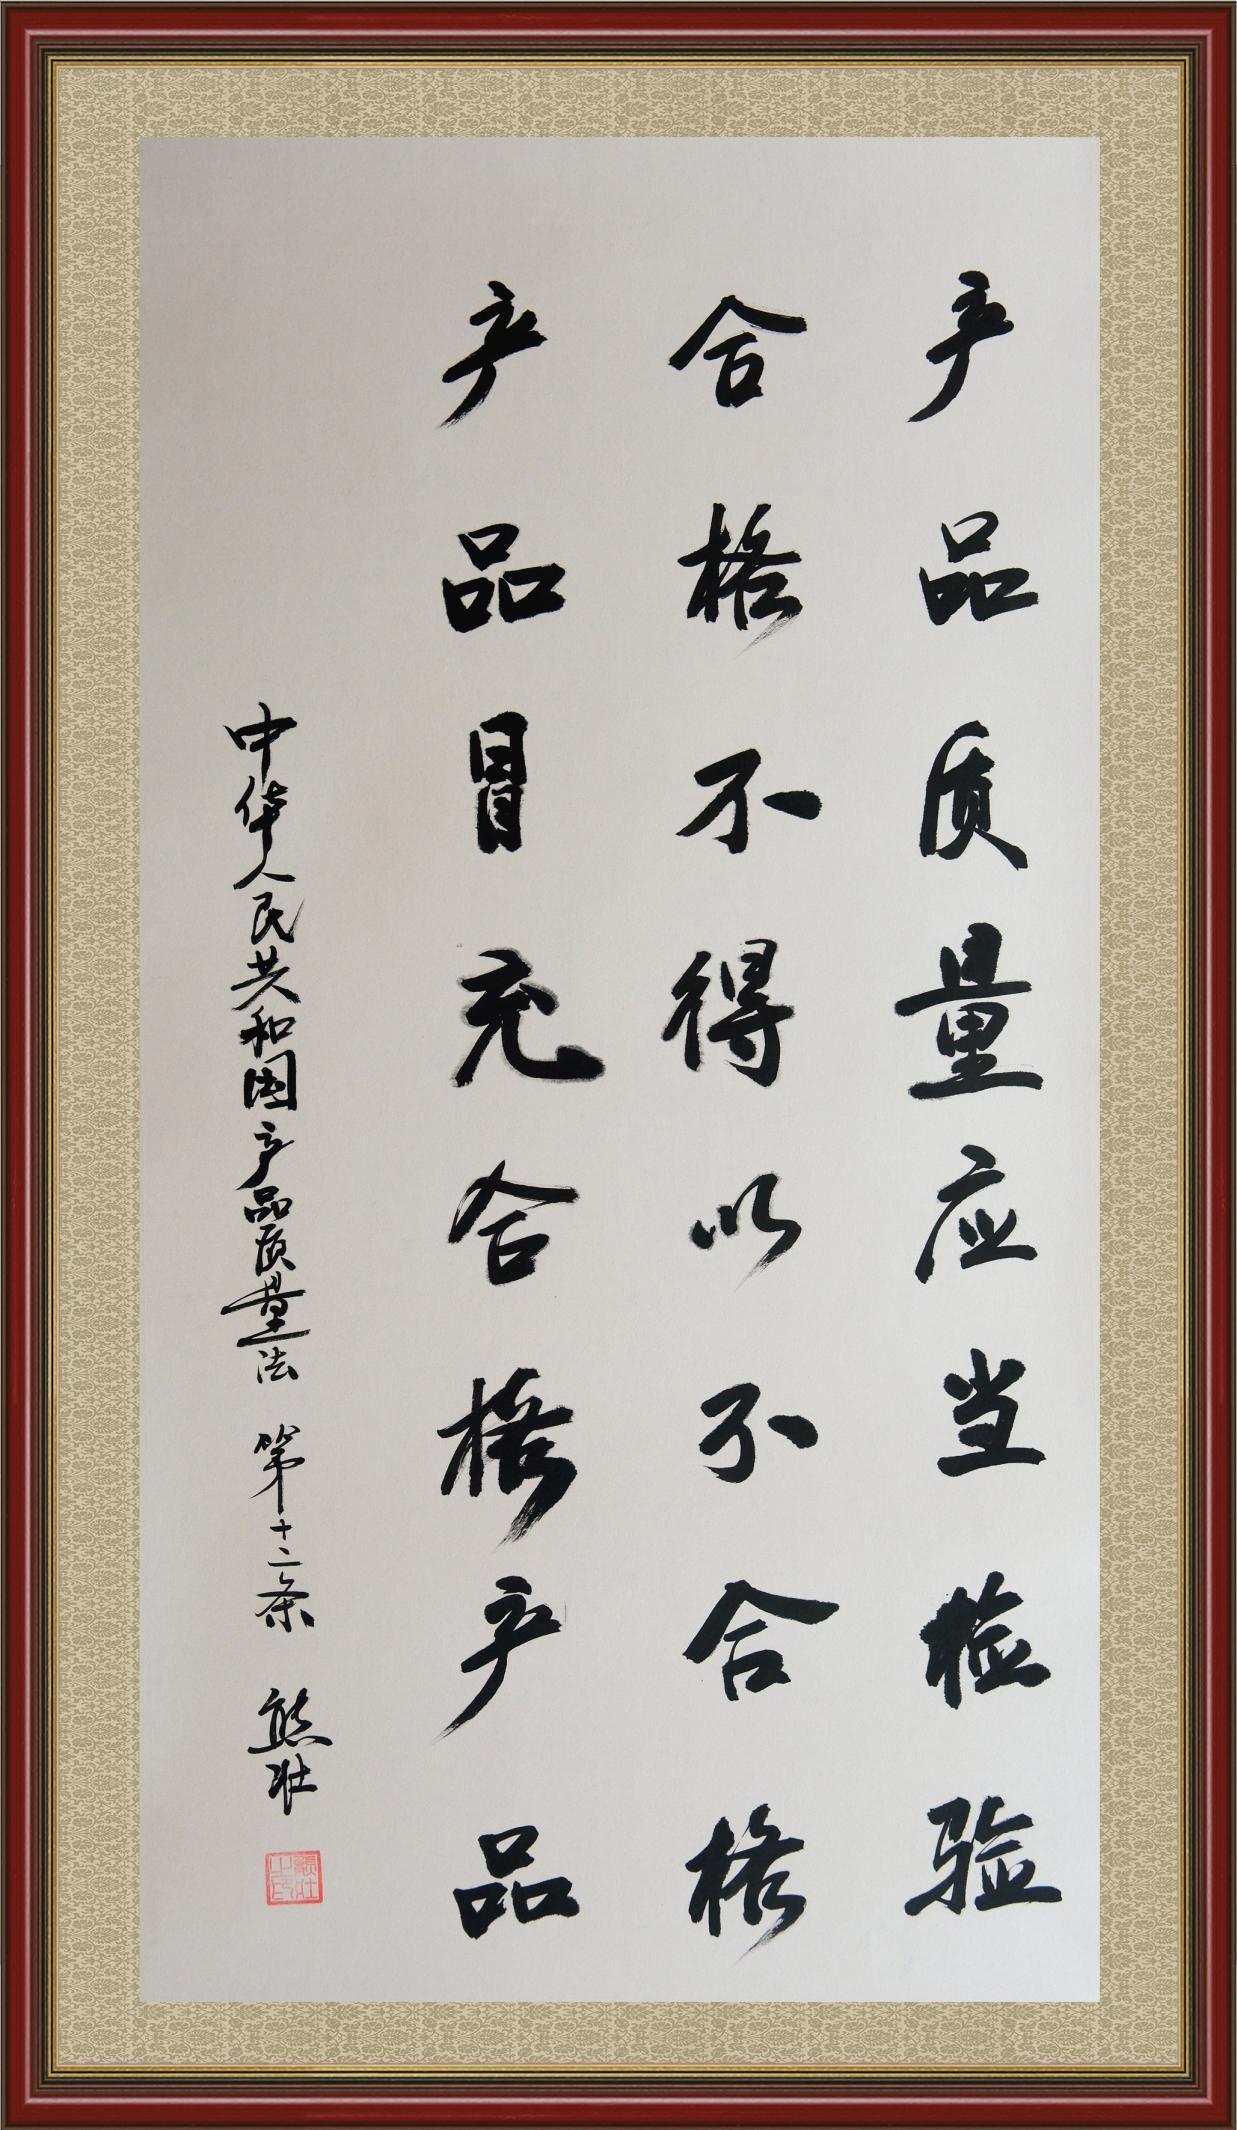 产品质量应当检验
合格不得以不合格
产品冒充合格产品
中华人民共和国产品质量法 第十二条 熊壮
熊壮之印